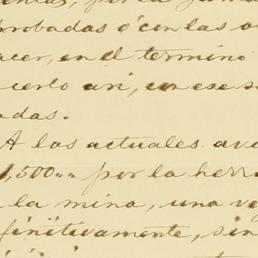 probadas ó con las o
acer, en el termino
cerlo asi, en ese s
adas.
A los actuales ave
1,500.. por la herr
la mina, una ve
finitivamente, sin